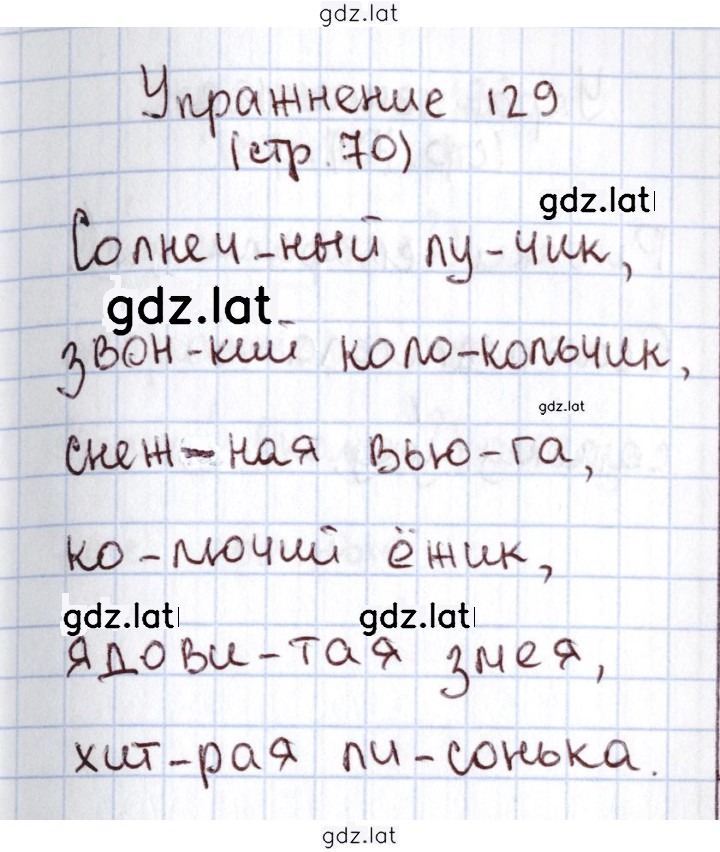 gdz.lat
Упражнение 129
(стр. 70)
gdz.lat
Солнеч-ный лу-чик,
gdz.lat
звон-кий коло-кольчик,
gdz.lat
снеж-ная вью-га,
ко-лючий ёжик,
gdz.lat gdz.lat
ядови-тая змея,
хит-рая ли-сонька.
gdz.lat